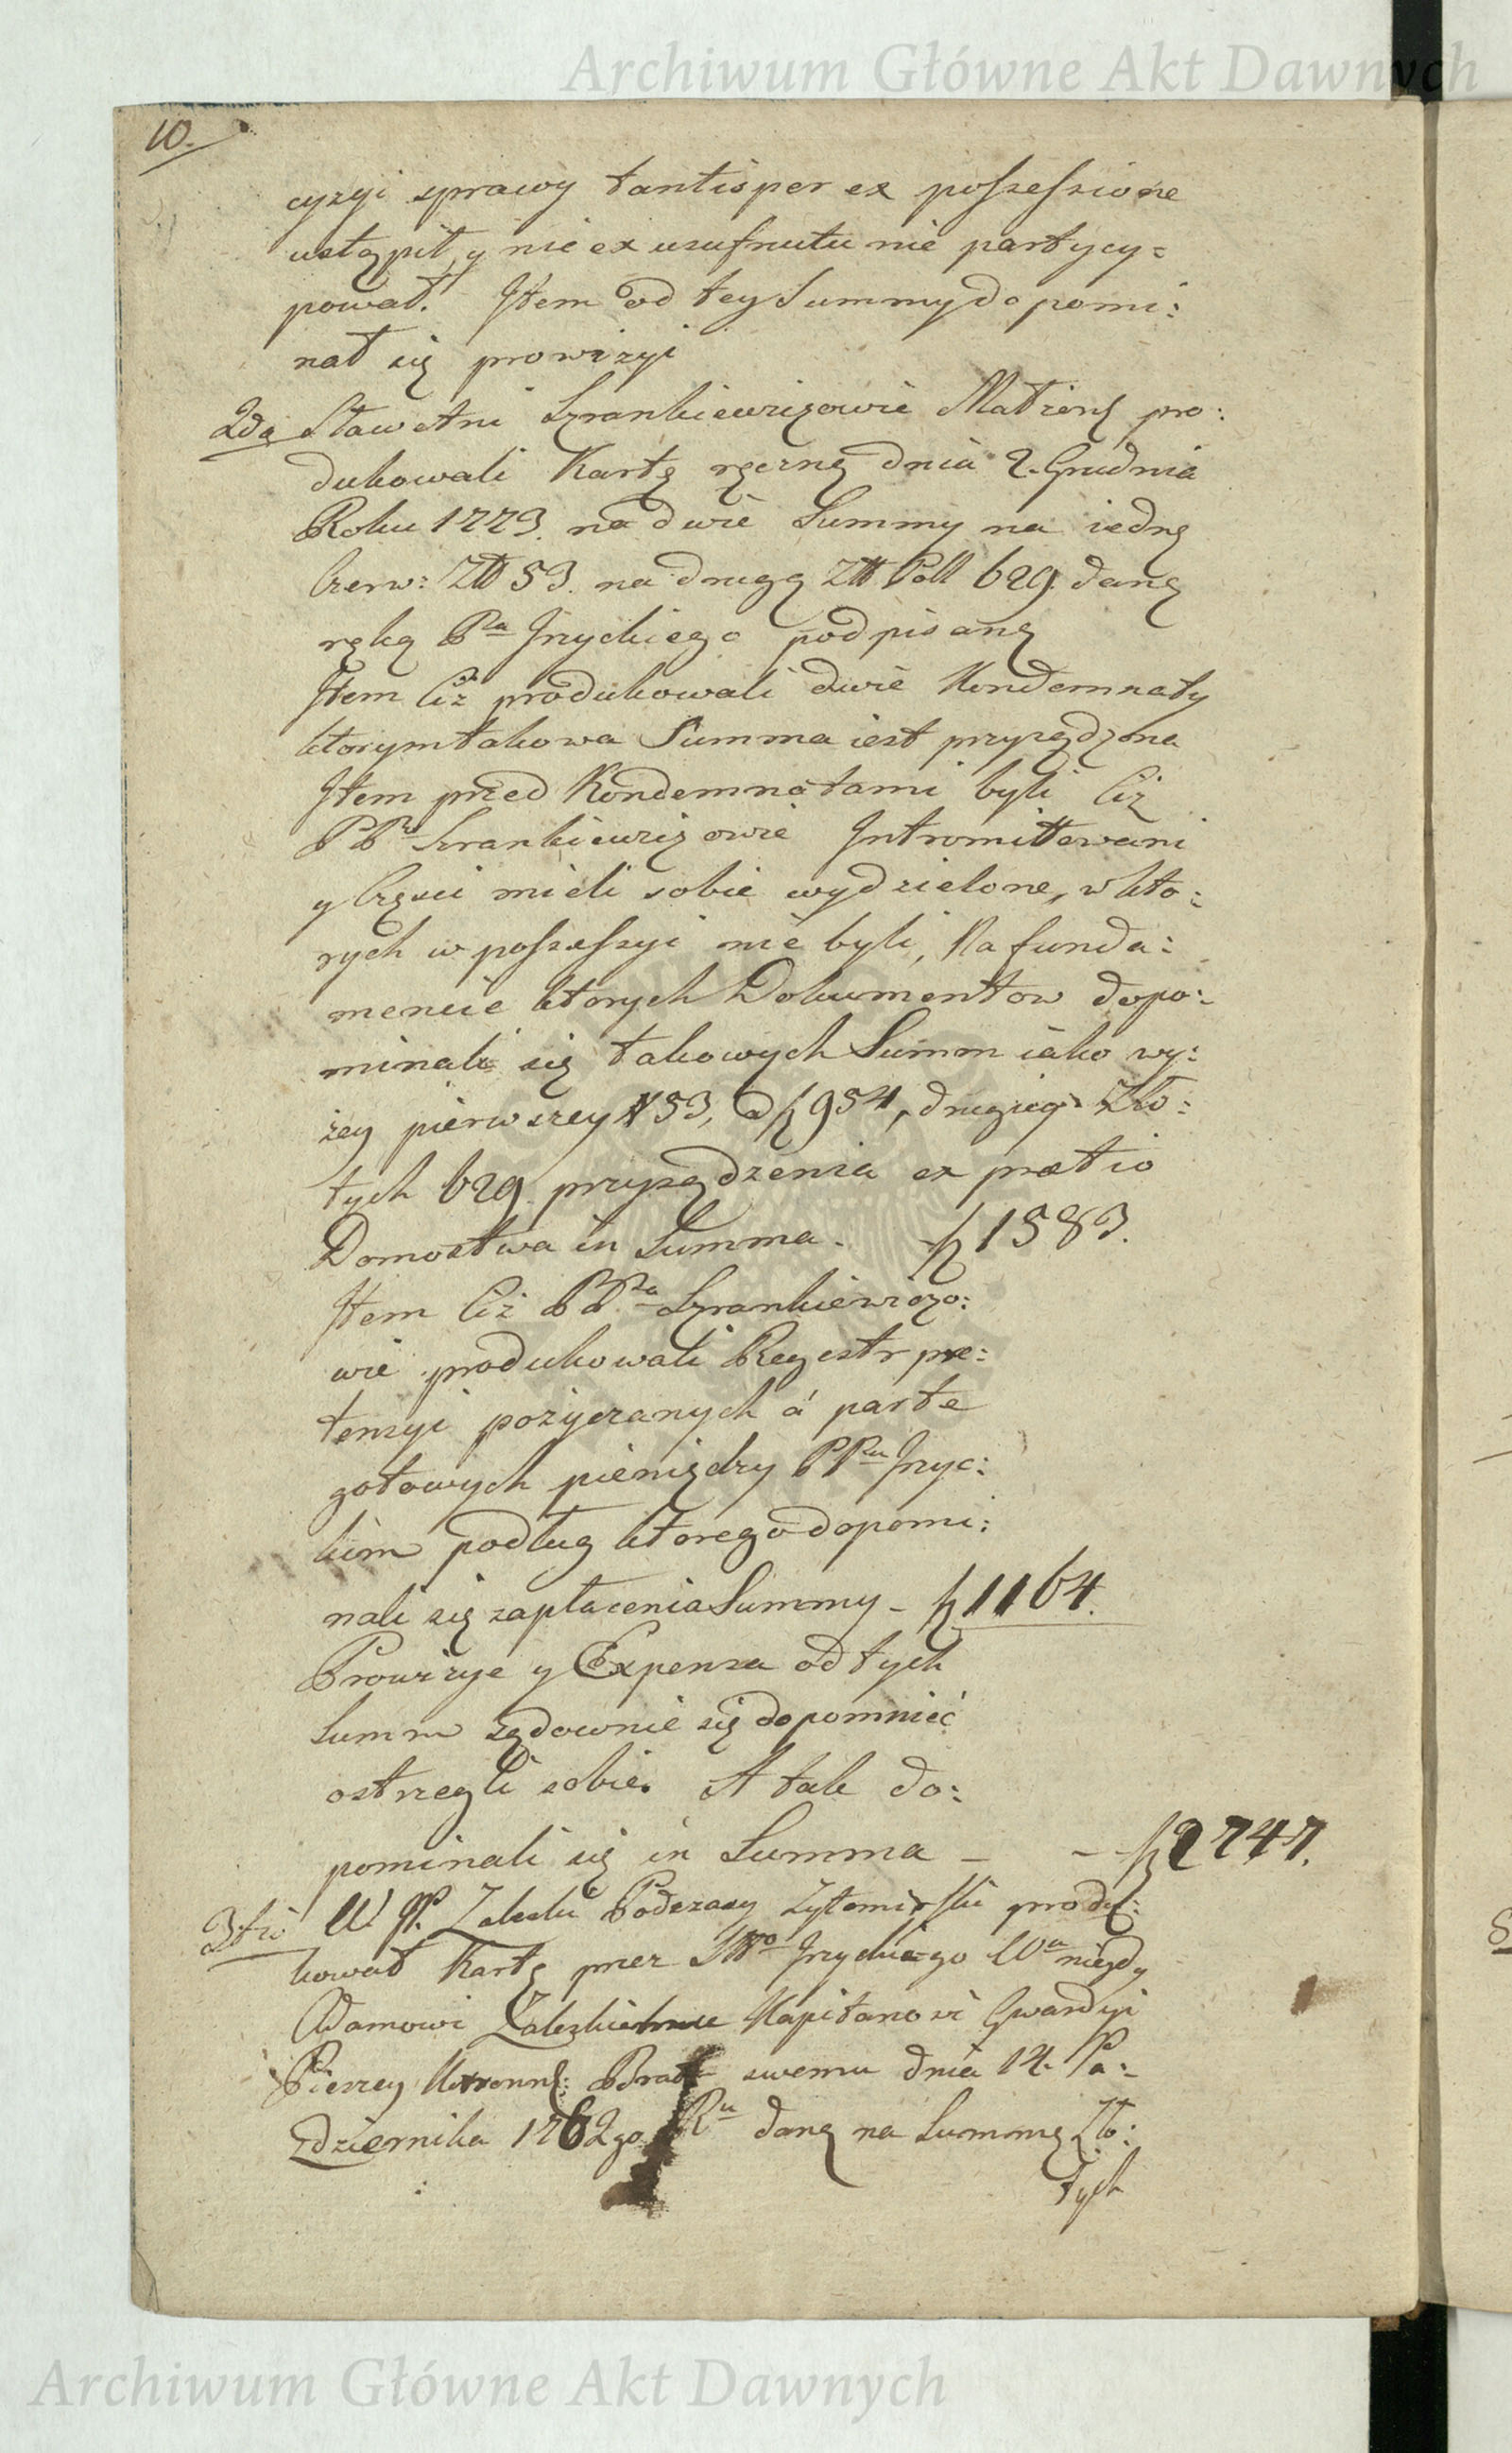 Archiwum Główne Akt Dawnych
10.
cyzyi sprawy tantisper ex possessione
ustąpił, y nic ex usufructu nie partycy=
pował. Item od tey Summy dopomi:
nał się prowizyi
2do Sławetni Szrankiewiczowie Małżonk pro:
dukowali Kartę ręczną dnia 2. Grudnia
Roku 1773. na dwie Summy na iedną
Czerw: Złł 53. na drugą Złł Poll 629. daną
ręką Pna Jrzyckiego podpisaną
Item Ciż produkowali dwie Kondemnaty
ktorym takowa Summa iest przysądzona
Item przed Kondemnatami byli Ciż
PPn Szrankiewiczowie Intromittowani
y Części mieli sobie wydzielone, w kto:
rych w possessyi nie byli, Na funda:
mencie ktorych Dokumentow dopo:
minali się takowych Summ iako wy:
zey pierwszey # 53, a f 954, drugiey Zło:
tych 629. przysądzenia ex prætio
Domostwa in Summa. f 1583.
Item Ciż PPna Szrankiewiczo:
wie produkowali Regestr pre:
tensyi pożyczanych á parte
gotowych pieniędzy PPnu Jrzyc:
kim podług ktorego dopomi:
nali się zapłacenia Summy - f 1164.
Prowizye y Expensa od tych
Summ sądownie się dopomnieć
ostrzegli sobie. A tak do:
pominali się in Summa - - f 2747.
3tio W. JP. Zaleski Podczaszy Zytomirski produ:
kował Kartę przez Jrzyckiego niegdy
Adamowi Zaleskiemu Kapitanowi Gwardyi
Pieszey Koronn: Bratu swemu dnia 14. Pa:
zdziernika 1762go Ru daną na Summę Zło:
tych
Archiwum Główne Akt Dawnych